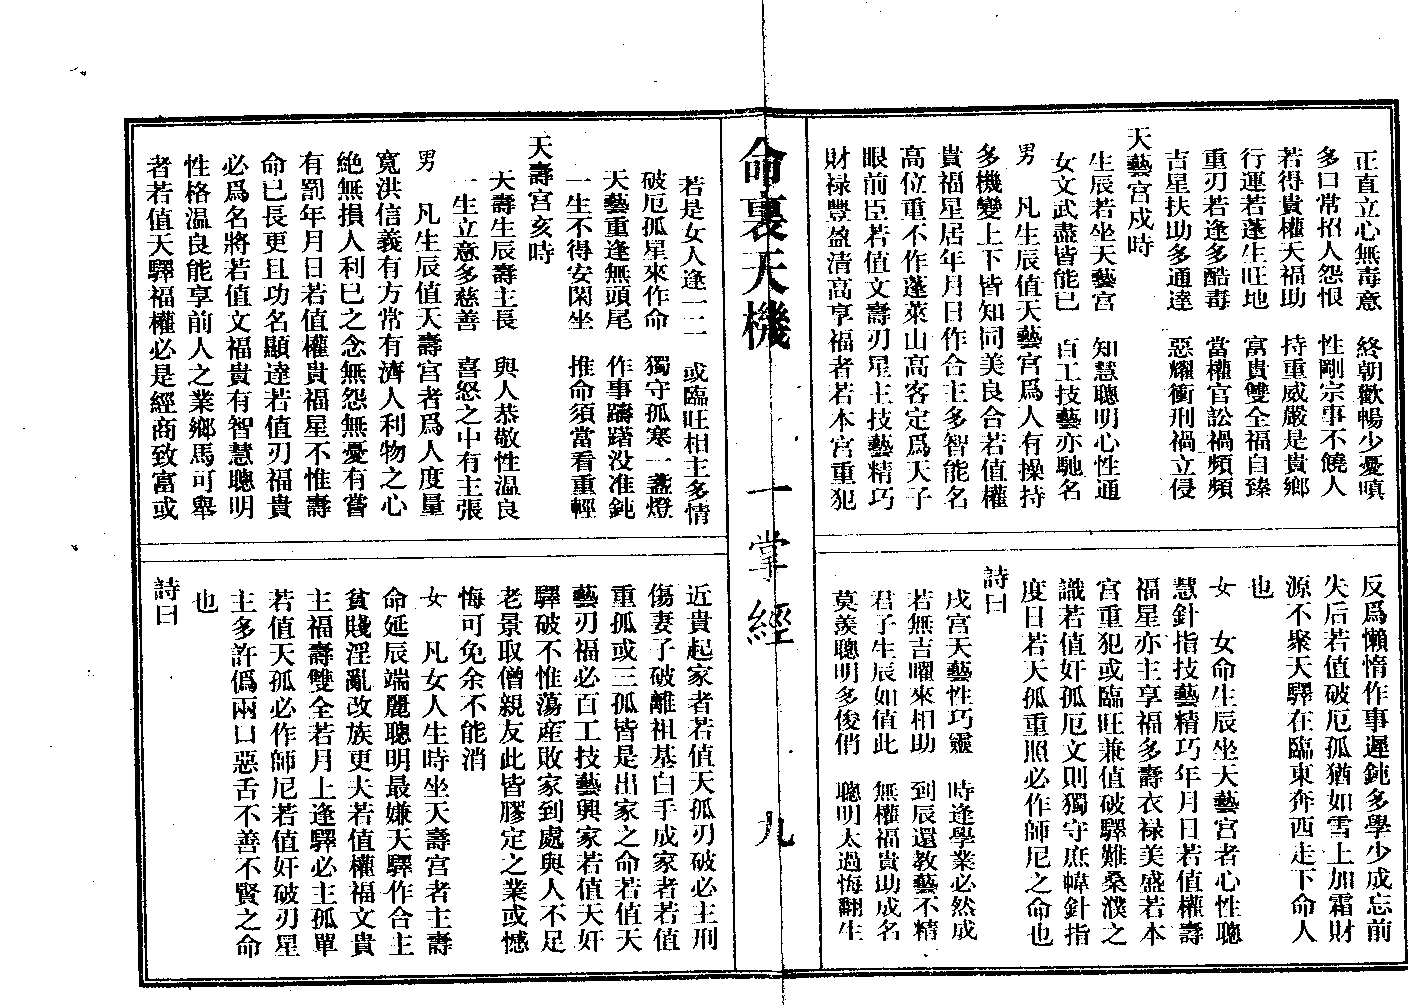 正直立心無毒意　終朝歡暢少憂嗔
多口常招人怨恨　性剛宗事不饒人
若得貴權天福助　持重威嚴是貴鄉
行運若逢生旺地　富貴雙全福自臻
重刃若逢多酷毒　當權官訟禍頻頻
吉星扶助多通達　惡耀衝刑禍立侵
天藝宮戌時
生辰若坐天藝宮　知慧聰明心性通
女文武盡皆能已　百工技藝亦馳名
男　凡生辰值天藝宮爲人有操持
多機變上下皆知同美良合若值權
貴福星居年月日作合主多智能名
高位重不作蓬萊山高客定爲天子
眼前臣若值文壽刃星主技藝精巧
財祿豐盈清高享福者若本宮重犯
反爲懶惰作事遲鈍多學少成忘前
失后若值破厄孤猶如雪上加霜財
源不聚天驛在臨東奔西走下命人
也
女　女命生辰坐天藝宮者心性聰
慧針指技藝精巧年月日若值權壽
福星亦主享福多壽衣祿美盛若本
宮重犯或臨旺兼值破驛難桑濮之
識若值奸孤厄文則獨守庶幃針指
度日若天孤重照必作師尼之命也
詩曰
戌宮天藝性巧靈　時逢學業必然成
若無吉曜來相助　到辰還教藝不精
君子生辰如值此　無權福貴助成名
莫羨聰明多俊俏　聰明太過悔翻生
命裏天機　一掌經　九
若是女人逢一二　或臨旺相主多情
破厄孤星來作命　獨守孤寒一盞燈
天藝重逢無頭尾　作事躊躇没准鈍
一生不得安閑坐　推命須當看重輕
天壽宮亥時
天壽生辰壽主長　與人恭敬性溫良
一生立意多慈善　喜怒之中有主張
男　凡生辰值天壽宮者爲人度量
寬洪信義有方常有濟人利物之心
絶無損人利己之念無怨無憂有嘗
有罰年月日若值權貴福星不惟壽
命已長更且功名顯達若值刃福貴
必爲名將若值文福貴有智慧聰明
性格溫良能享前人之業鄉馬可舉
者若值天驛福權必是經商致富或
近貴起家者若值天孤刃破必主刑
傷妻子破離祖基白手成家者若值
重孤或三孤皆是出家之命若值天
藝刃福必百工技藝興家若值天奸
驛破不惟蕩産敗家到處與人不足
老景取僧親友此皆膠定之業或憾
悔可免余不能消
女　凡女人生時坐天壽宮者主壽
命延辰端麗聰明最嫌天驛作合主
貧賤淫亂改族更夫若值權福文貴
主福壽雙全若月上逢驛必主孤單
若值天孤必作師尼若值奸破刃星
主多許僞兩口惡舌不善不賢之命
也
詩曰